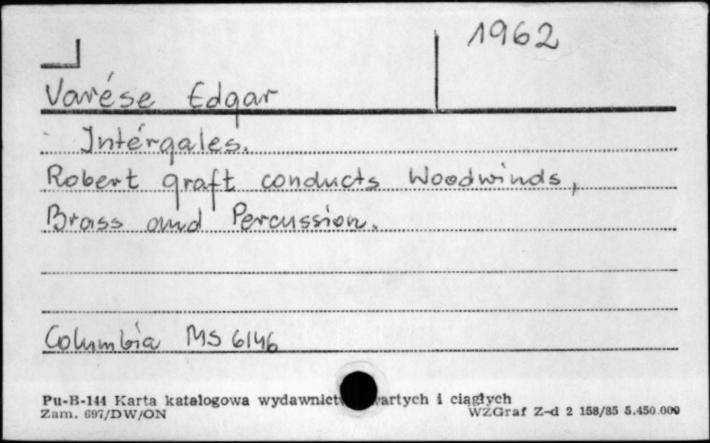 1962
Varése Edgar
Intérgales.
Robert graft conducts Woodwinds,
Brass and Percussion.
Columbia MS 6146
Pu-B-144 Karta katalogowa wydawnict artych i ciągłych
Zam. 697/DW/ON WZGraf Z-d 2 158/85 5.450.000